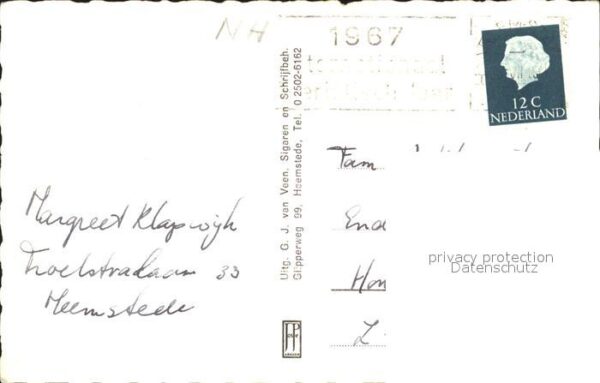 NH
1967
Internationaal
Toeristisch Jaar
12 C
NEDERLAND
Uitg. G. J. van Veen. Sigaren en Schrijfbeh.
Glipperweg 99. Heemstede, Tel. 0 2502-6162
Margreet Klapwijk
Troelstralaan 33
Heemstede
Fam
privacy protection
Datenschutz